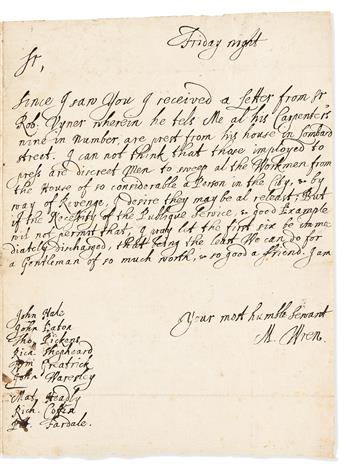 Friday night
Sr,
Since I saw You I received a Letter from Sr
Rob: Vyner wherein he tels Me al his Carpenters
nine in Number are prest from his house in Lombard
street. I can not think that those imployed to
press are discreet Men to sweep al the Workmen from
the House of so considerable a Person in the City, & by
way of Revenge, I desire they may be al releast, But
if the Necessity of the Publique Service, & good Example
wil not permit that, I pray let the first six be imme
diately discharged, that being the least We can do for
a Gentleman of so much worth, & so good a friend. I am
Your most humble servant
M. Wren.
John Hale
John Eaton
Tho: Pickens
Rich. Shepheard
John
Mat: Headly
Rich. Coffin
Fardale.